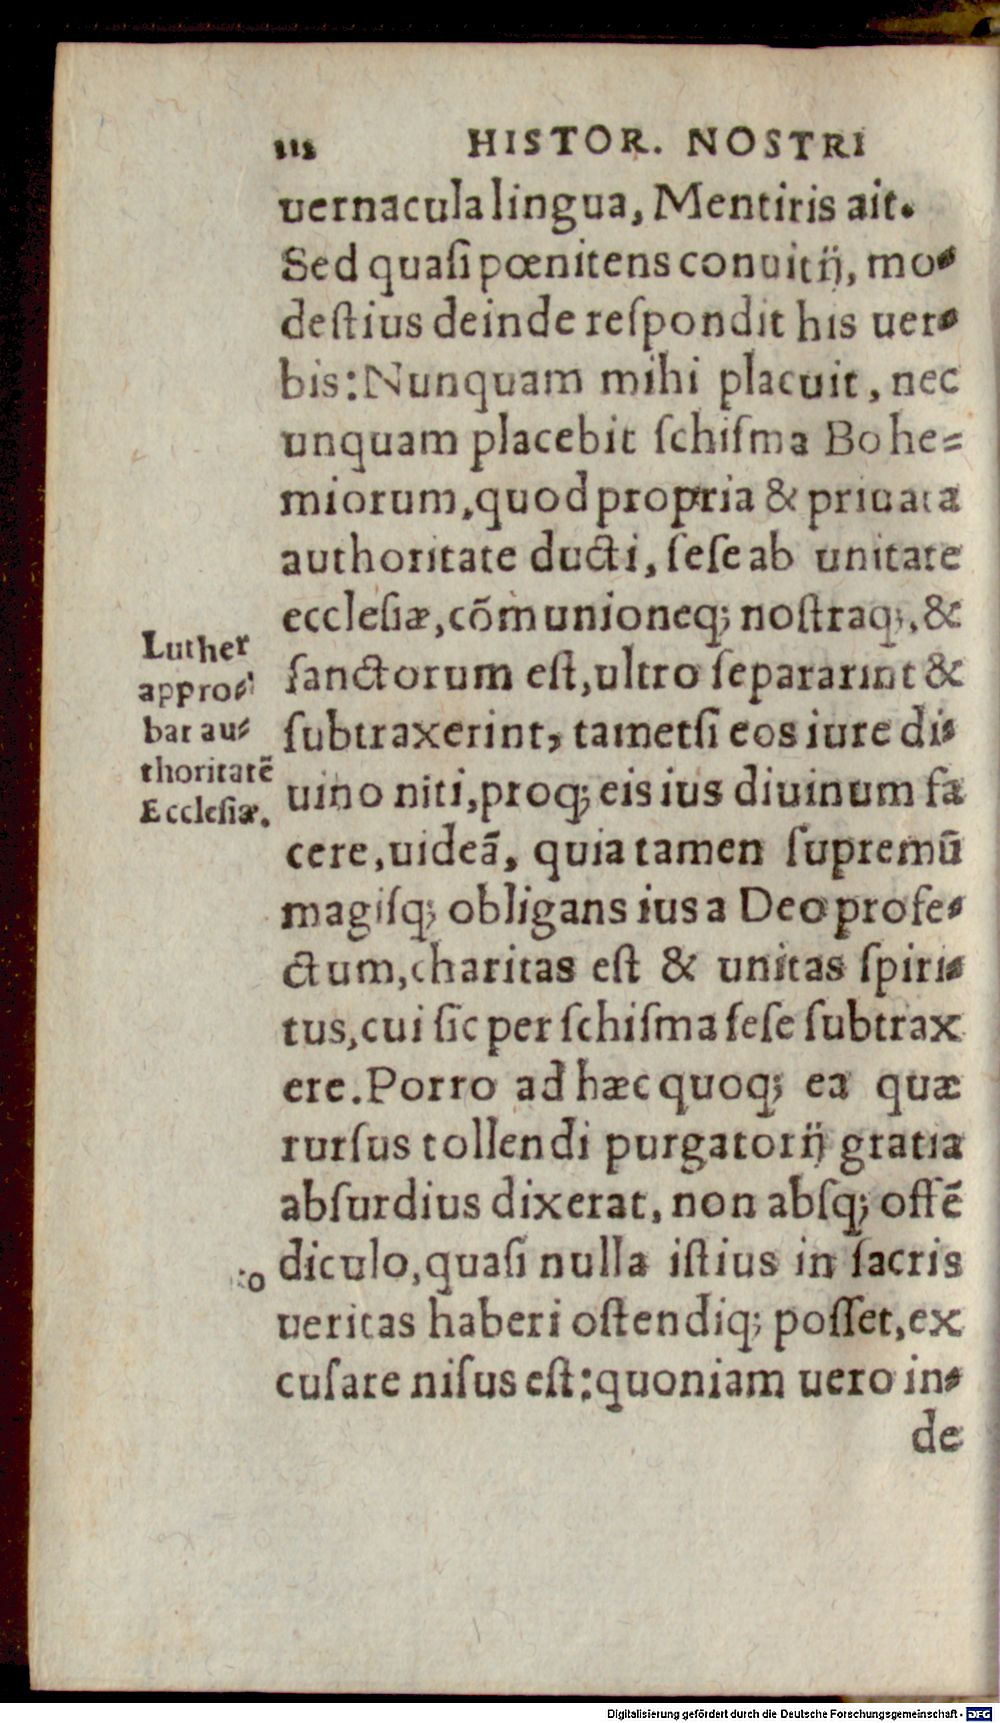 112 HISTOR. NOSTRI
uernacula lingua, Mentiris ait.
Sed quaſi pœnitens conuitij, mo-
deſtius deinde reſpondit his uer-
bis: Nunquam mihi placuit, nec
unquam placebit ſchiſma Bohe=
miorum, quod propria & priuata
authoritate ducti, ſeſe ab unitate
eccleſiæ, cõmunioneq; noſtraq;, &
ſanctorum eſt, ultro ſepararint &
ſubtraxerint, tametſi eos iure di-
uino niti, proq; eis ius diuinum fa
cere, uideã, quia tamen ſupremũ
magiſq; obligans ius a Deo profe-
ctum, charitas eſt & unitas ſpiri-
tus, cui ſic per ſchiſma ſeſe ſubtrax
ere. Porro ad hæc quoq; ea quæ
rurſus tollendi purgatorij gratia
abſurdius dixerat, non abſq; offẽ
diculo, quaſi nulla iſtius in ſacris
ueritas haberi oſtendiq; poſſet, ex
cuſare niſus eſt: quoniam uero in-
de
Luther
appro-
bat au-
thoritatẽ
Eccleſiæ.
Digitalisierung gefördert durch die Deutsche Forschungsgemeinschaft - DFG